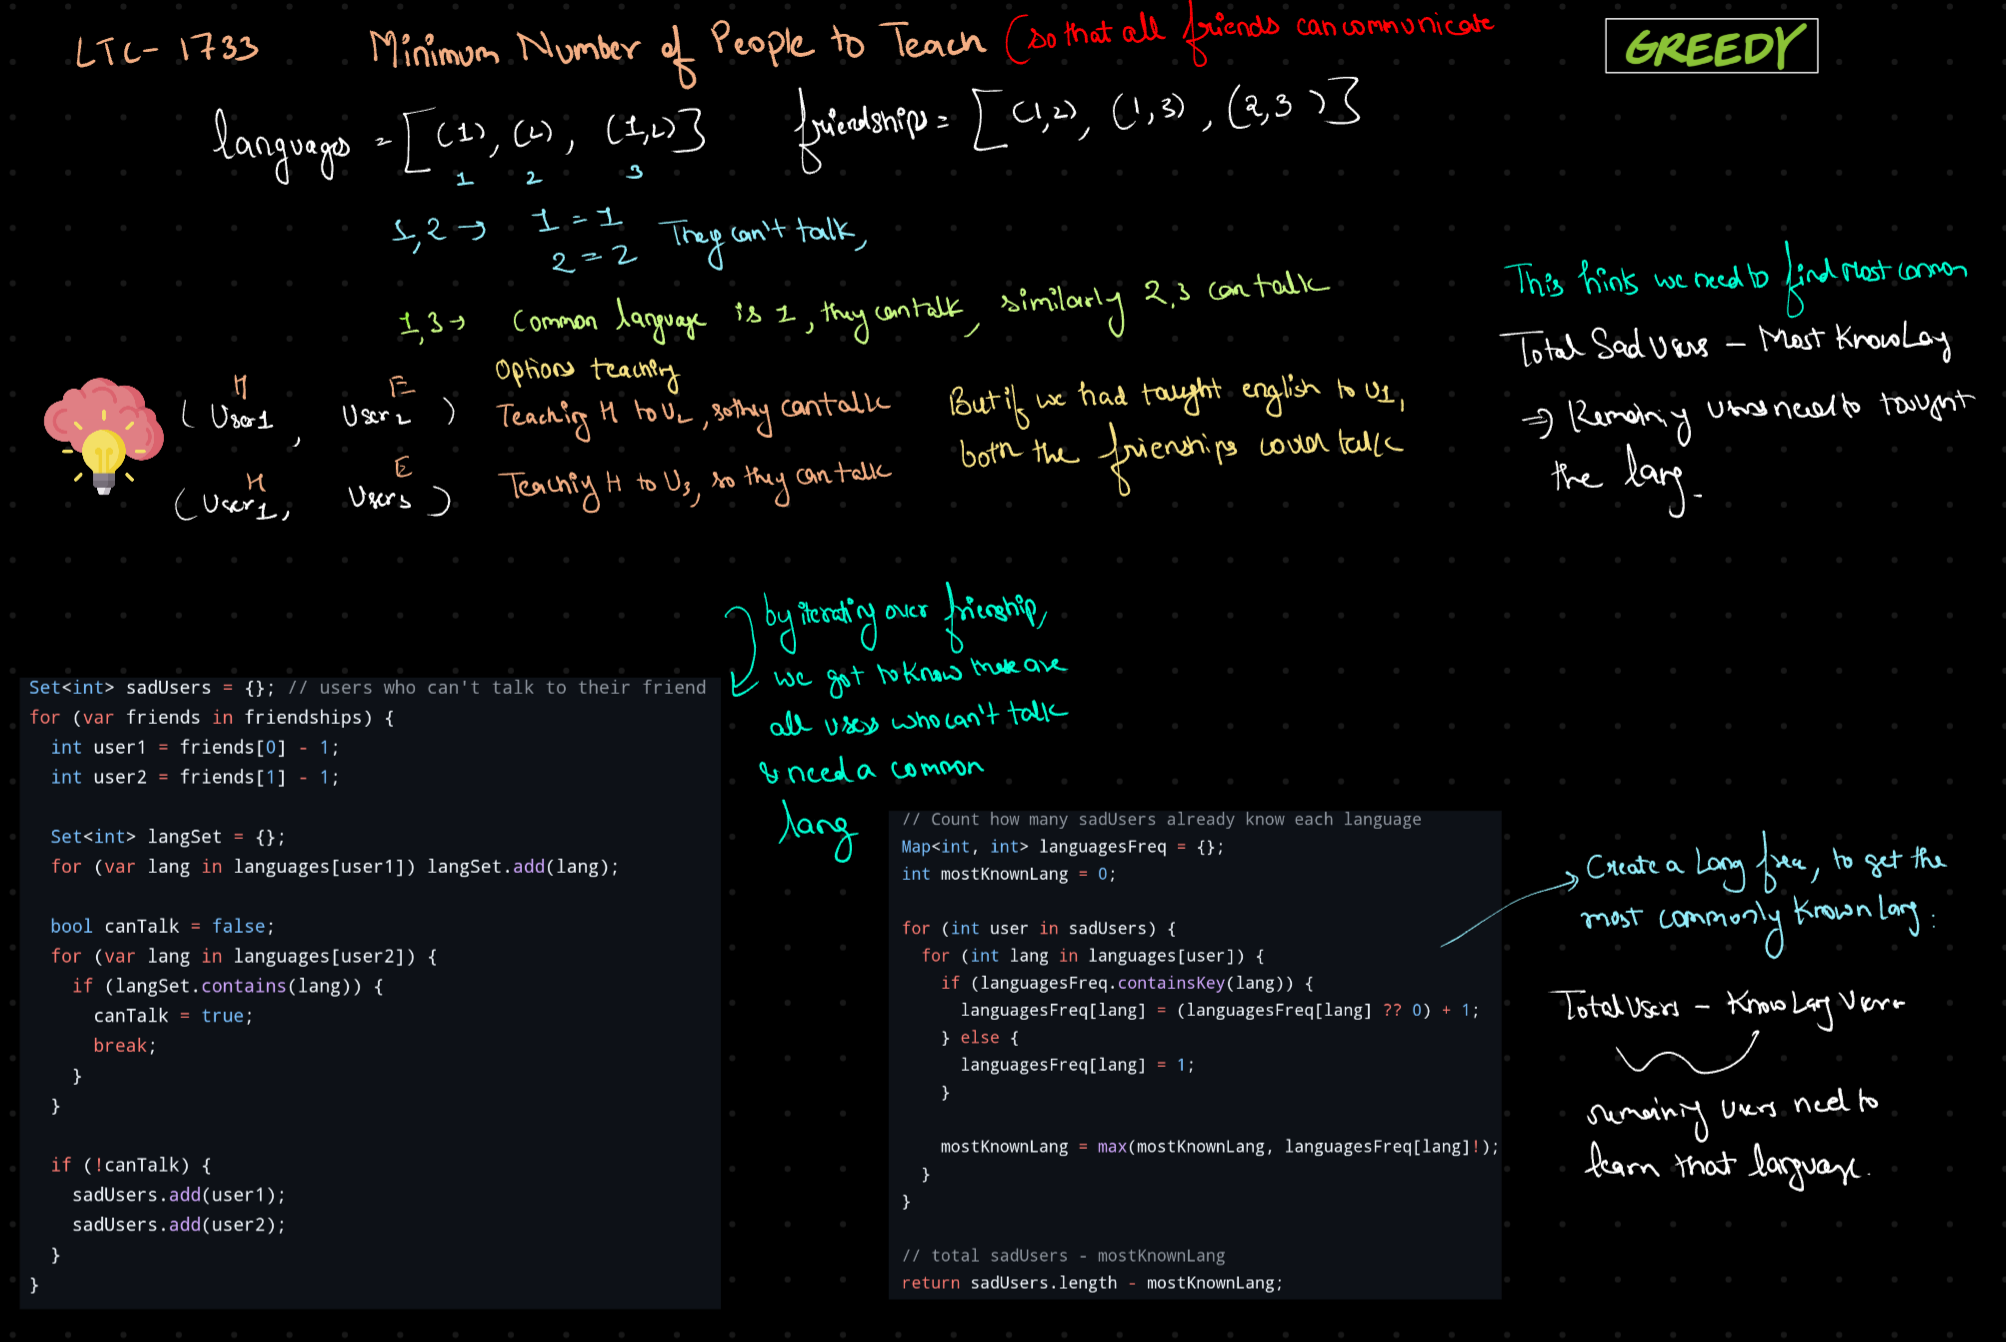 LTC- 1733 Minimum Number of People to Teach (so that all friends can communicate
GREEDY
languages = [(1), (2), (1,2)]
1 2 3
friendships = [(1,2), (1,3), (2,3)]
1,2 → 1 = 1
2 = 2
They can't talk,
1,3 → Common language is 1, they can talk, similarly 2,3 can talk
Options teaching
H E
(User1, User2) Teaching H to U2, so they can talk
H E
(User1, User3) Teachiy H to U3, so they can talk
But if we had taught english to U1,
both the frienships could talk
This hints we need to find Most common
Total Sad Users - Most Know Lag
⇒ Remainiy users need to taught
the lang.
by iteratiy over frienship,
we got to know these are
all users who can't talk
& need a common
lang
Set<int> sadUsers = {}; // users who can't talk to their friend
for (var friends in friendships) {
int user1 = friends[0] - 1;
int user2 = friends[1] - 1;
Set<int> langSet = {};
for (var lang in languages[user1]) langSet.add(lang);
bool canTalk = false;
for (var lang in languages[user2]) {
if (langSet.contains(lang)) {
canTalk = true;
break;
}
}
if (!canTalk) {
sadUsers.add(user1);
sadUsers.add(user2);
}
}
// Count how many sadUsers already know each language
Map<int, int> languagesFreq = {};
int mostKnownLang = 0;
for (int user in sadUsers) {
for (int lang in languages[user]) {
if (languagesFreq.containsKey(lang)) {
languagesFreq[lang] = (languagesFreq[lang] ?? 0) + 1;
} else {
languagesFreq[lang] = 1;
}
mostKnownLang = max(mostKnownLang, languagesFreq[lang]!);
}
}
// total sadUsers - mostKnownLang
return sadUsers.length - mostKnownLang;
Create a Lang freq, to get the
most commonly Known Lang:
Total Users - Know Lag Users
remainiy users need to
learn that language.